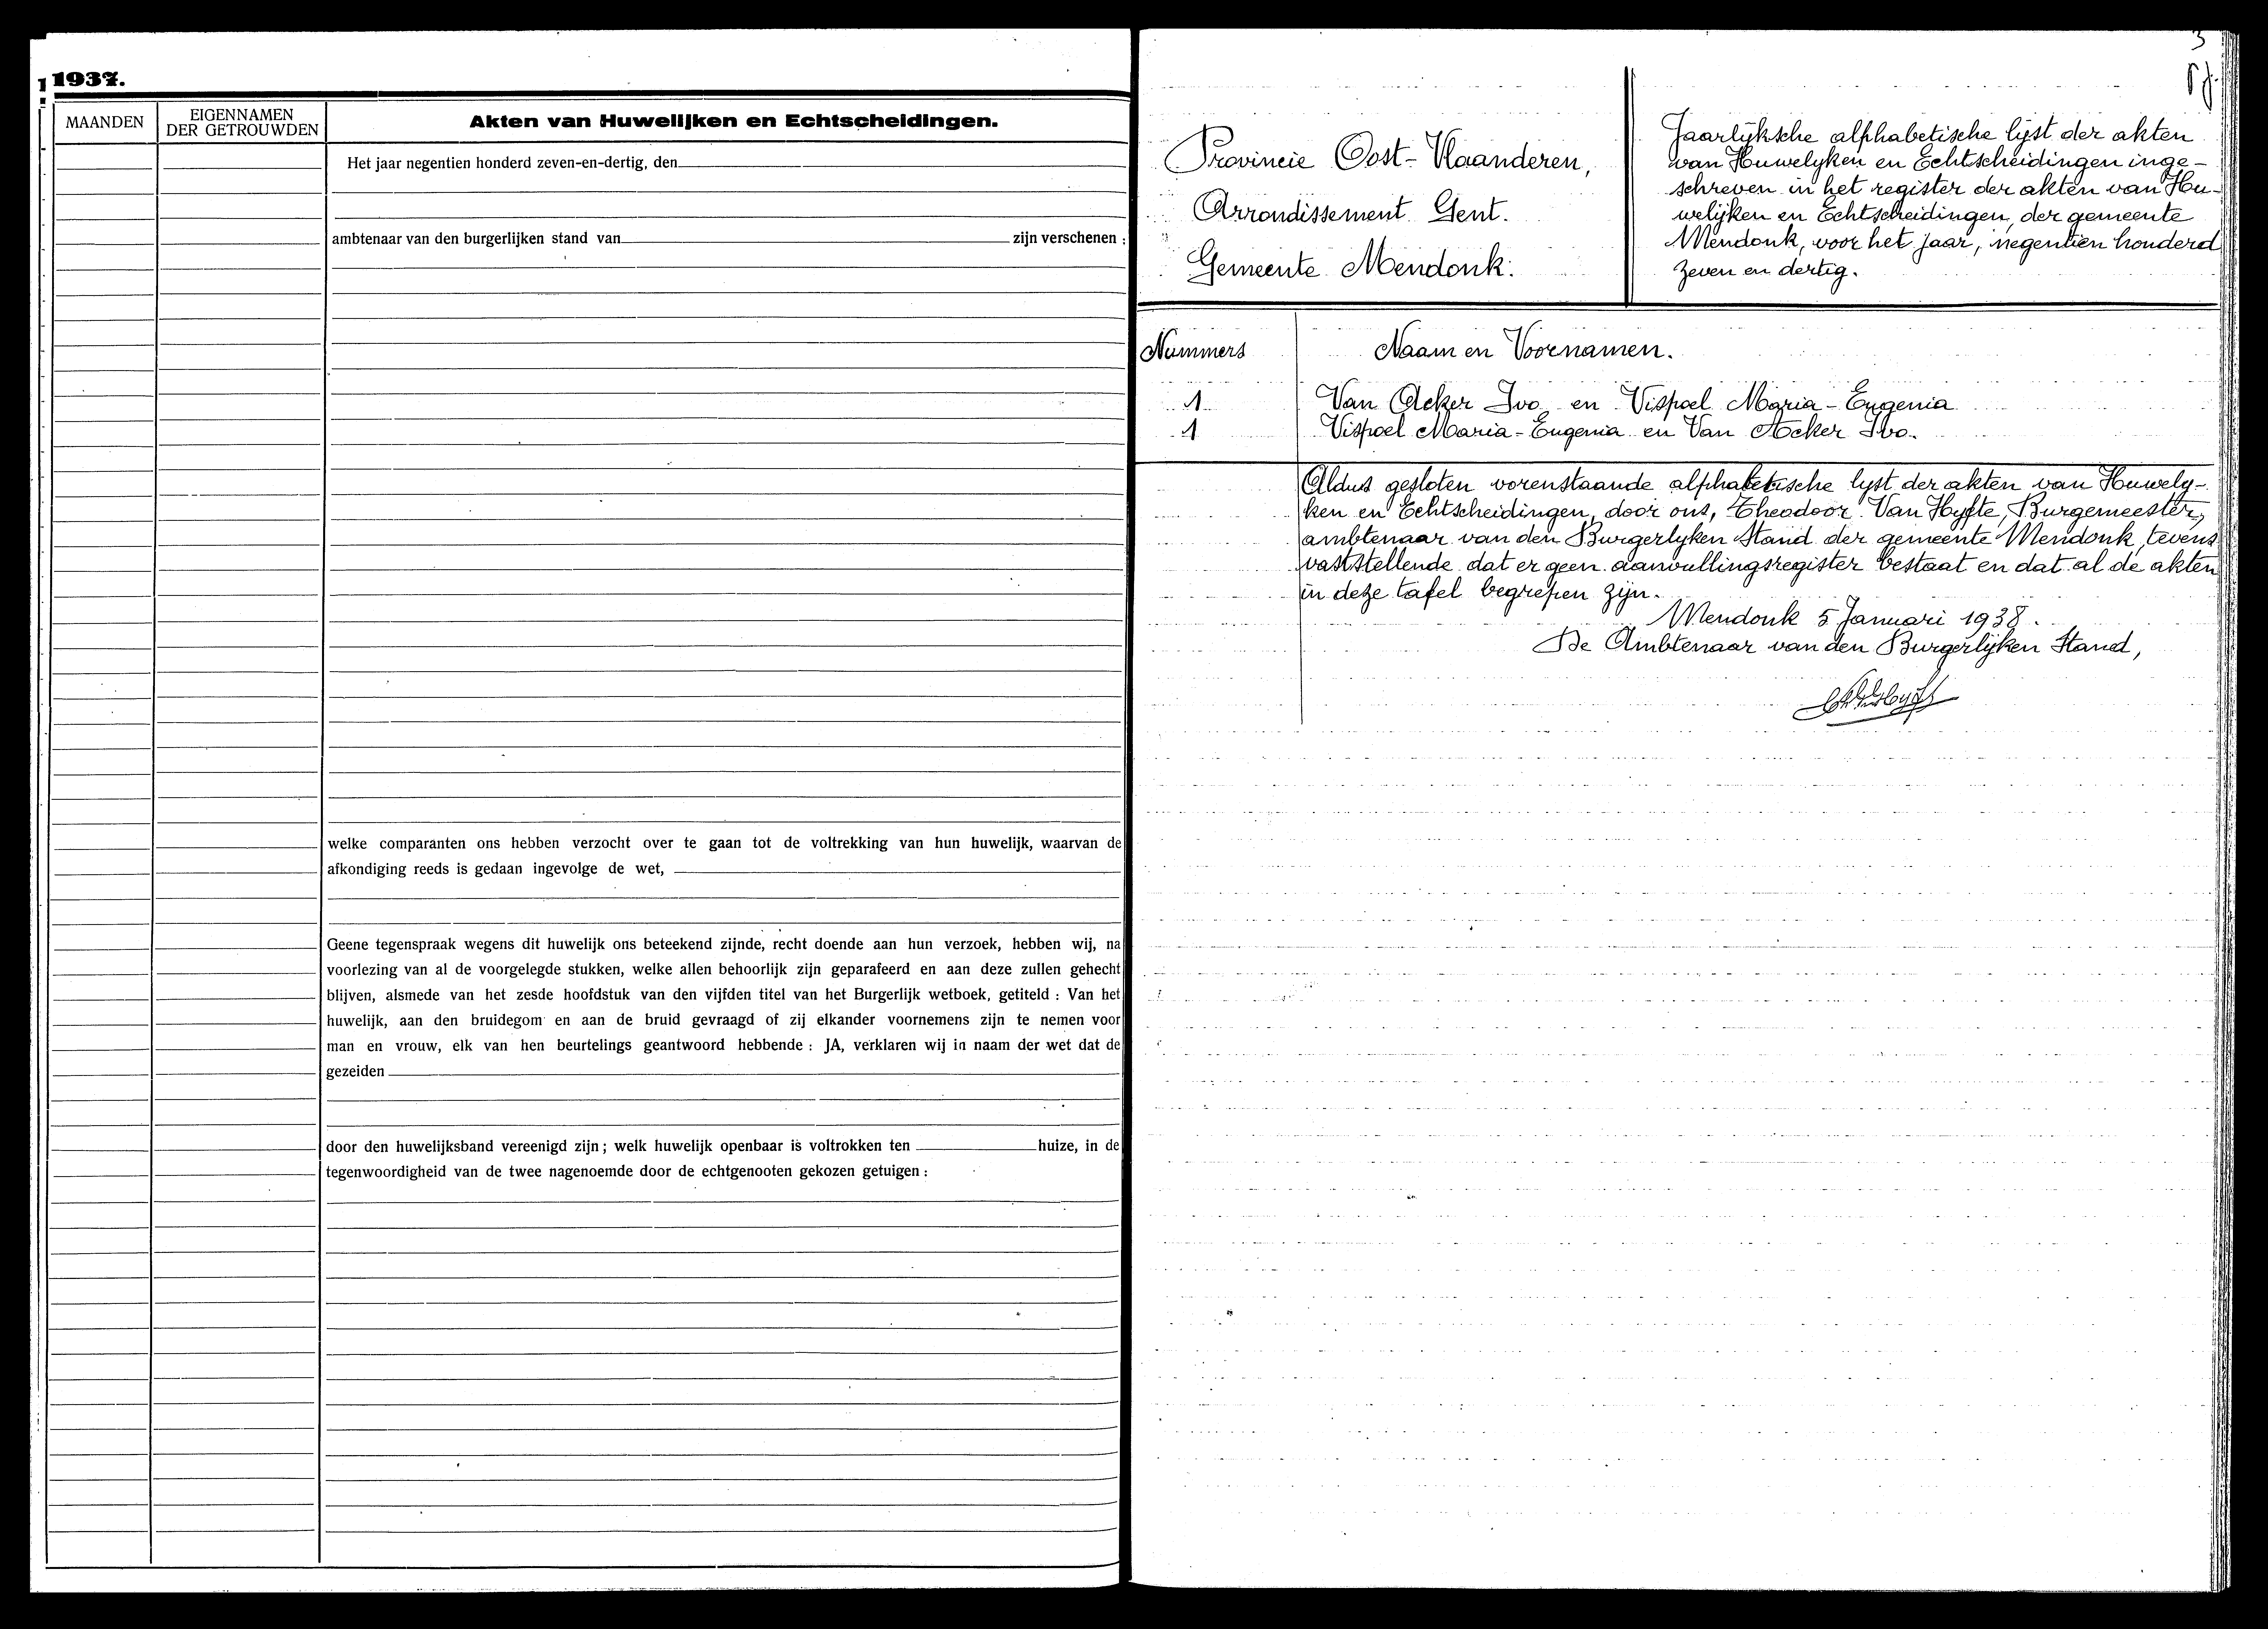 1937.
MAANDEN
EIGENNAMEN
DER GETROUWDEN
Akten van Huwelijken en Echtscheidingen.
Het jaar negentien honderd zeven-en-dertig, den
ambtenaar van den burgerlijken stand van zijn verschenen :
welke comparanten ons hebben verzocht over te gaan tot de voltrekking van hun huwelijk, waarvan de
afkondiging reeds is gedaan ingevolge de wet,
Geene tegenspraak wegens dit huwelijk ons beteekend zijnde, recht doende aan hun verzoek, hebben wij, na
voorlezing van al de voorgelegde stukken, welke allen behoorlijk zijn geparafeerd en aan deze zullen gehecht
blijven, alsmede van het zesde hoofdstuk van den vijfden titel van het Burgerlijk wetboek, getiteld : Van het
huwelijk, aan den bruidegom en aan de bruid gevraagd of zij elkander voornemens zijn te nemen voor
man en vrouw, elk van hen beurtelings geantwoord hebbende : JA, verklaren wij in naam der wet dat de
gezeiden
door den huwelijksband vereenigd zijn ; welk huwelijk openbaar is voltrokken ten huize, in de
tegenwoordigheid van de twee nagenoemde door de echtgenooten gekozen getuigen :
3
Provincie Oost-Vlaanderen,
Arrondissement Gent.
Gemeente Mendonk.
Jaarlijksche alphabetische lijst der akten
van Huwelyken en Echtscheidingen inge-
schreven in het register der akten van Hu-
welijken en Echtscheidingen, der gemeente
Mendonk, voor het jaar, negentien honderd
zeven en dertig.
Nummers
Naam en Voornamen.
1 Van Acker Ivo en Vispoel Maria-Eugenia
1 Vispoel Maria-Eugenia en Van Acker Ivo.
Aldus gesloten vorenstaande alphabetische lyst der akten van Huwely-
ken en Echtscheidingen, door ons, Theodoor Van Hyfte, Burgemeester,
ambtenaar van den Burgerlyken Stand der gemeente Mendonk, tevens
vaststellende dat er geen aanvullingsregister bestaat en dat al de akten
in deze tafel begrepen zijn.
Mendonk 5 Januari 1938.
De Ambtenaar van den Burgerlijken Stand,